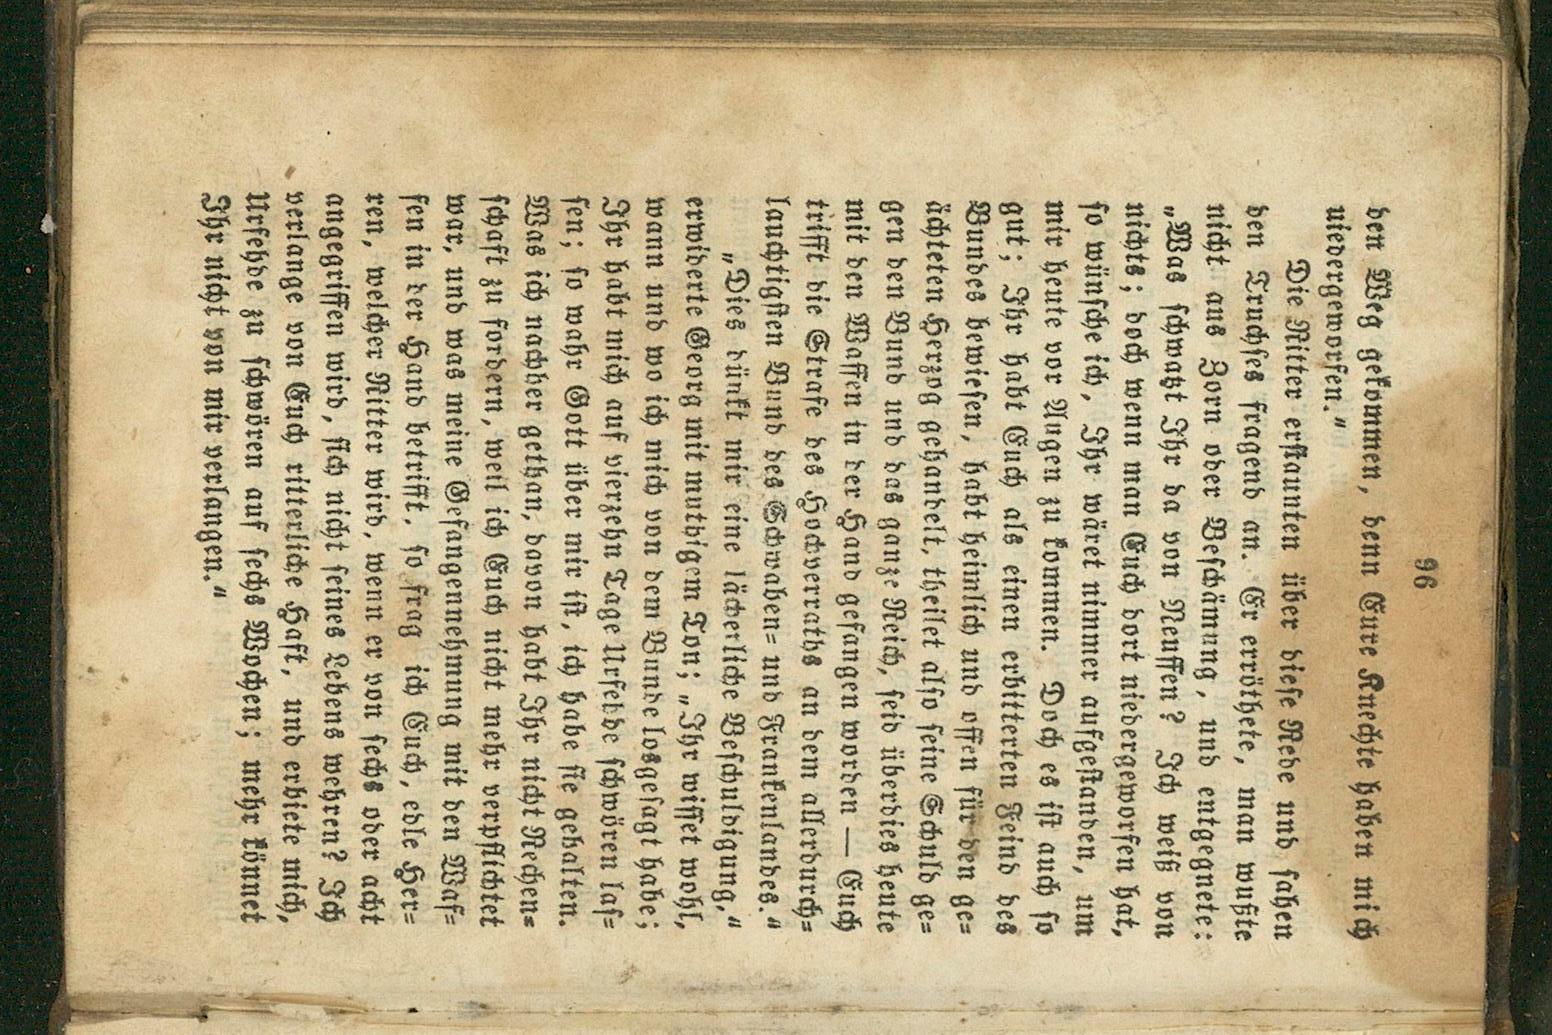 96
den Weg gekommen, denn Eure Knechte haben mich
niedergeworfen."
Die Ritter erstaunten über diese Rede und sahen
den Truchses fragend an. Er erröthete, man wußte
nicht aus Zorn oder Beschämung, und entgegnete:
„Was schwatzt Ihr da von Neuffen? Ich weiß von
nichts; doch wenn man Euch dort niedergeworfen hat,
so wünsche ich, Ihr wäret nimmer aufgestanden, um
mir heute vor Augen zu kommen. Doch es ist auch so
gut; Ihr habt Euch als einen erbitterten Feind des
Bundes bewiesen, habt heimlich und offen für den ge-
ächteten Herzog gehandelt, theilet also seine Schuld ge-
gen den Bund und das ganze Reich, seid überdies heute
mit den Waffen in der Hand gefangen worden — Euch
trifft die Strafe des Hochverraths an dem allerdurch-
lauchtigsten Bund des Schwaben- und Frankenlandes."
„Dies dünkt mir eine lächerliche Beschuldigung,"
erwiderte Georg mit muthigem Ton; „Ihr wisset wohl,
wann und wo ich mich von dem Bunde losgesagt habe;
Ihr habt mich auf vierzehn Tage Urfehde schwören las-
sen; so wahr Gott über mir ist, ich habe sie gehalten.
Was ich nachher gethan, davon habt Ihr nicht Rechen-
schaft zu fordern, weil ich Euch nicht mehr verpflichtet
war, und was meine Gefangennehmung mit den Waf-
fen in der Hand betrifft, so frag ich Euch, edle Her-
ren, welcher Ritter wird, wenn er von sechs oder acht
angegriffen wird, sich nicht seines Lebens wehren? Ich
verlange von Euch ritterliche Haft, und erbiete mich,
Urfehde zu schwören auf sechs Wochen; mehr könnet
Ihr nicht von mir verlangen."